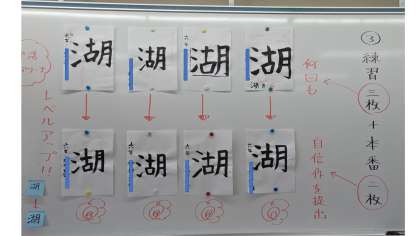 ③練習三枚+本番二枚
何回も
自信作を提出
湖
湖
湖
湖
湖
湖
湖
湖
レベルアップ!!
湖
湖